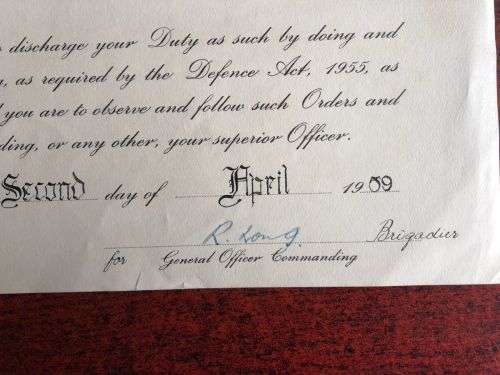 discharge your Duty as such by doing and
as required by the Defence Act, 1955, as
you are to observe and follow such Orders and
or any other, your superior Officer.
Second day of April 1959
R. Long Brigadier
for General Officer Commanding